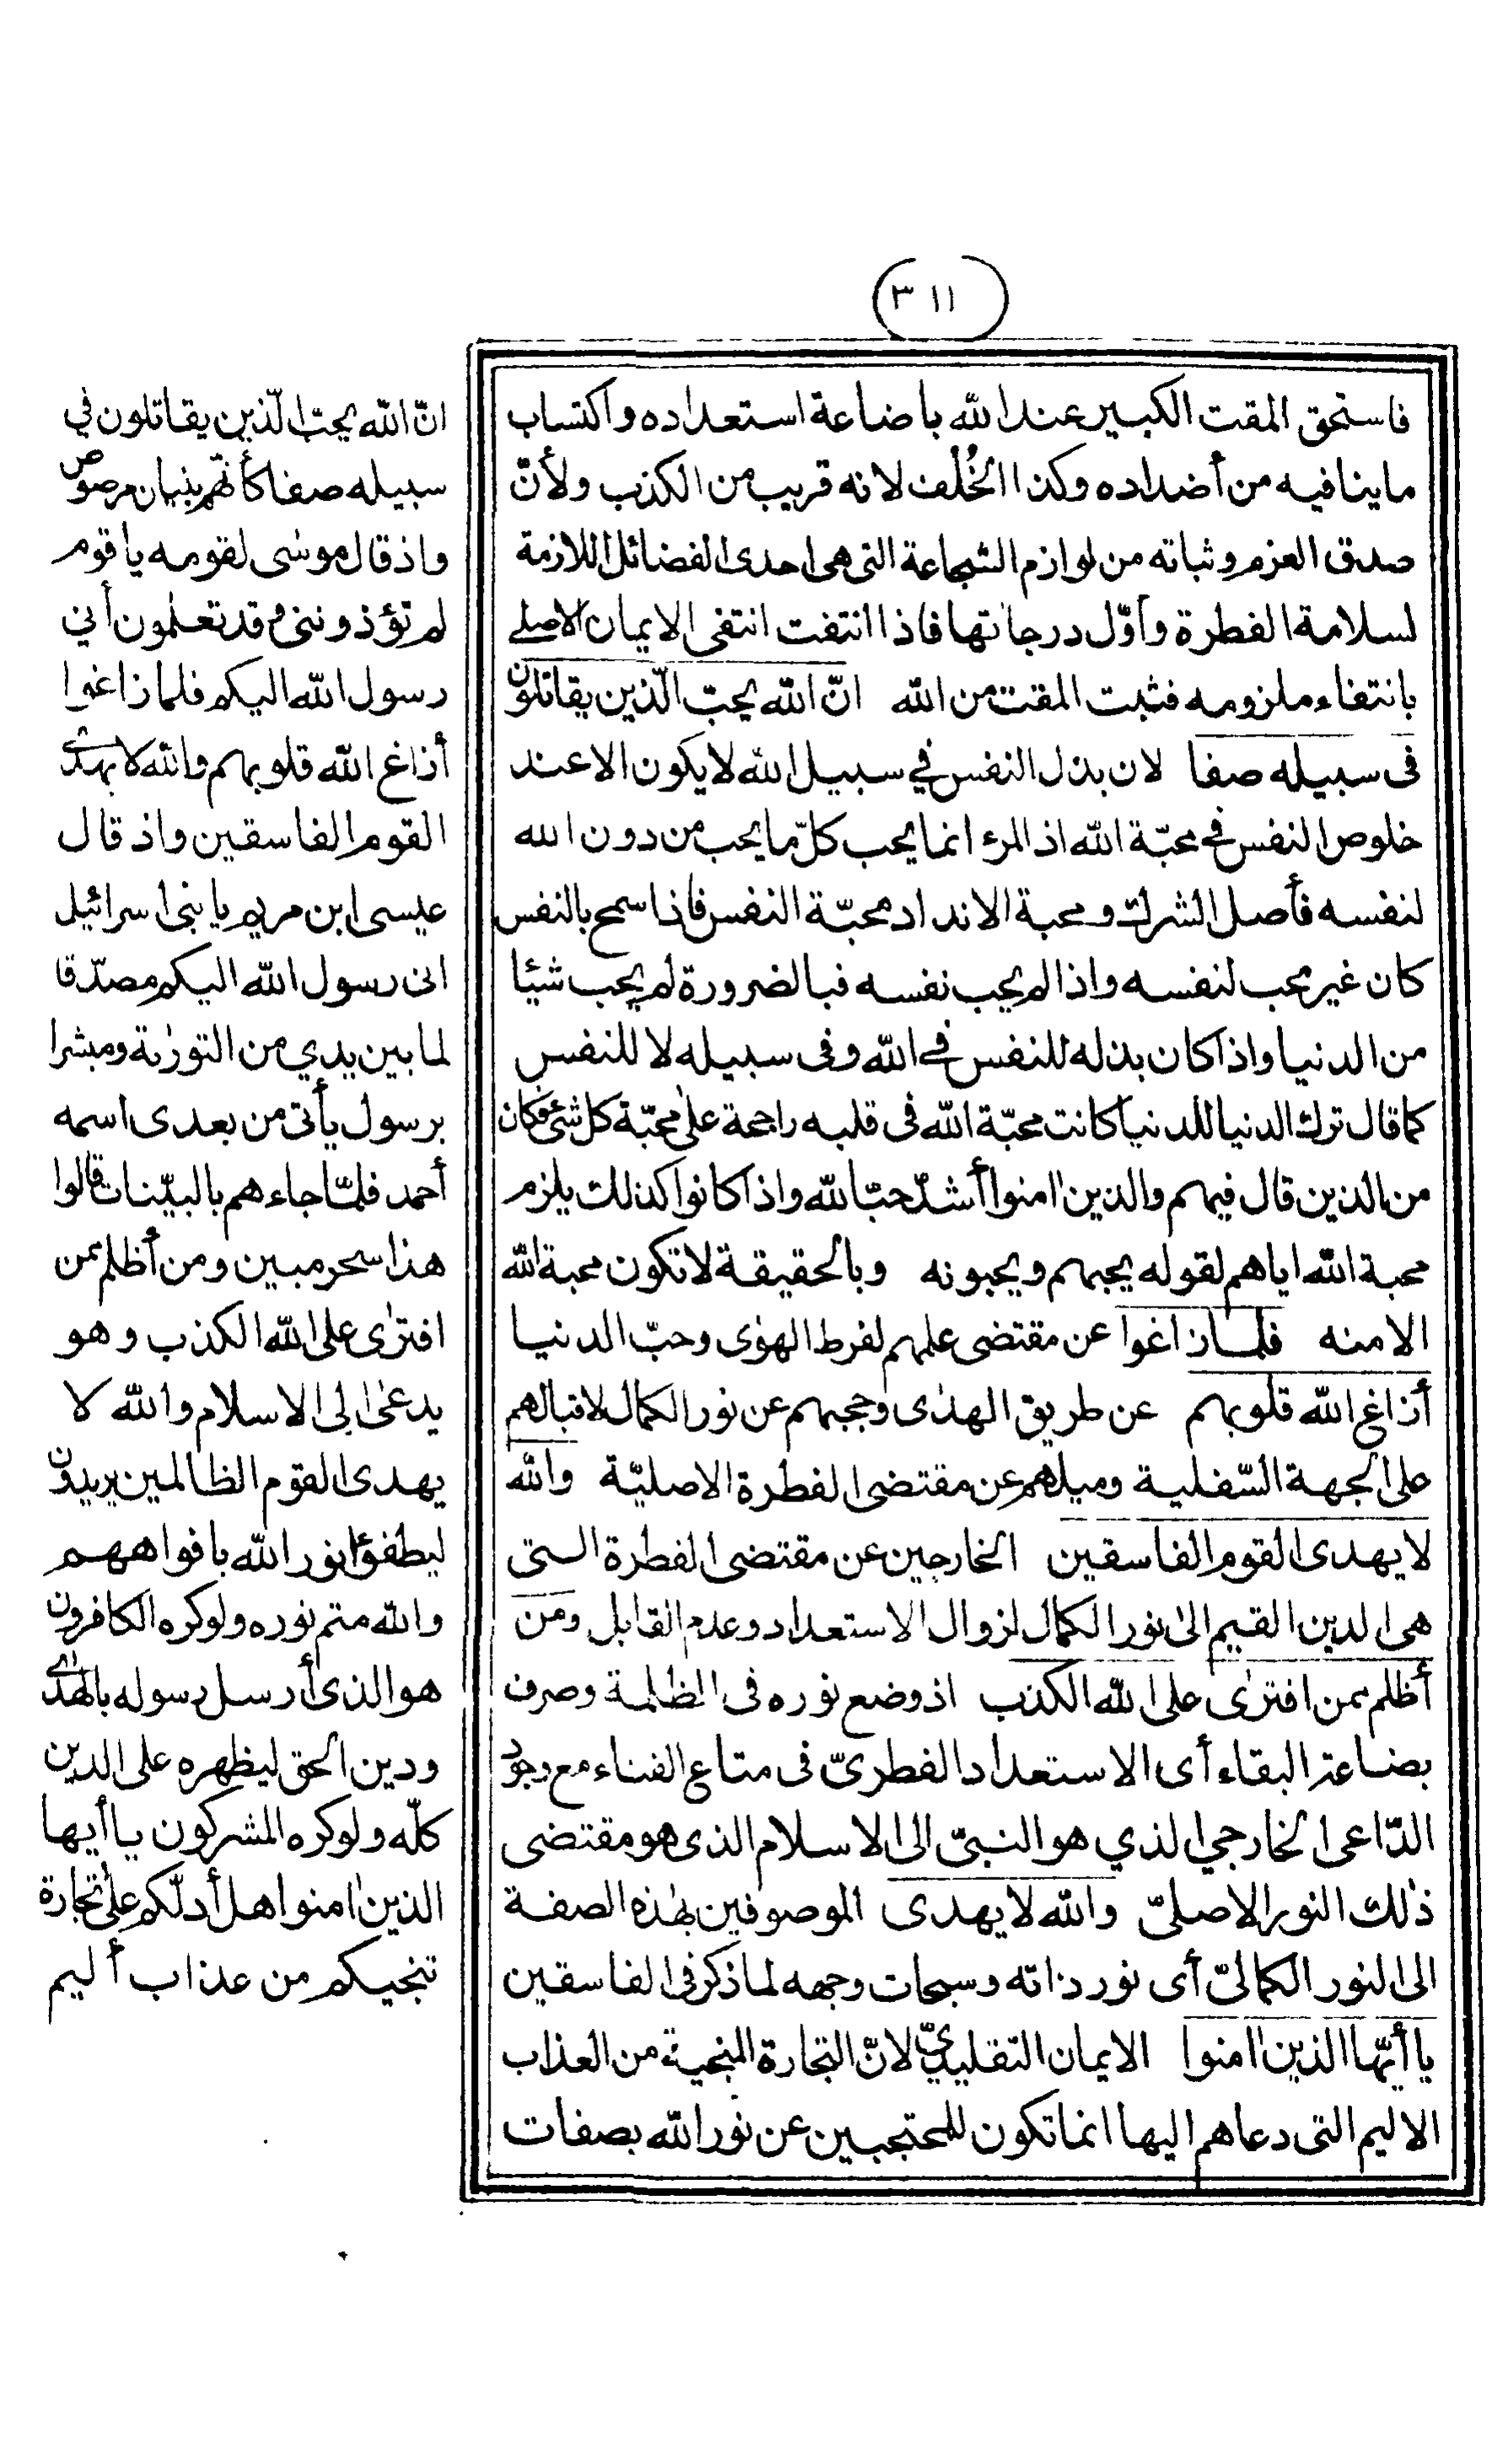 (٣١١)
فاستحق المقت الكبير عند الله باضاعة استعداده واكتساب
ماينافيه من أضداده وكذا الخُلْف لانه قريب من الكذب ولأنّ
صدق العزم وثباته من لوازم الشجاعة التى هى احدى الفضائل اللازمة
لسلامة الفطرة وأوّل درجاتها فاذا انتفت انتفى الايمان الاصلى
بانتفاء ملزومه فثبت المقت من الله انّ الله يحبّ الّذين يقاتلون
فى سبيله صفا لان بذل النفس في سبيل الله لايكون الا عند
خلوص النفس في محبّة الله اذ المرء انما يحب كلّ ما يحب من دون الله
لنفسه فأصل الشرك ومحبة الانداد محبّة النفس فاذا سمح بالنفس
كان غير محب لنفسه واذا لم يحب نفسه فبالضرورة لم يحب شيئا
من الدنيا واذا كان بذله للنفس في الله وفى سبيله لا للنفس
كما قال ترك الدنيا للدنيا كانت محبّة الله فى قلبه راجحة على محبّة كل شئ فكان
من الذين قال فيهم والذين امنوا أشدّ حبّا لله واذا كانوا كذلك يلزم
محبة الله اياهم لقوله يحبهم ويحبونه وبالحقيقة لا تكون محبة الله
الا منه فلمّا زاغوا عن مقتضى علمهم لفرط الهوى وحبّ الدنيا
أزاغ الله قلوبهم عن طريق الهدى وحجبهم عن نور الكمال لاقبالهم
على الجهة السّفلية وميلهم عن مقتضى الفطرة الاصليّة والله
لا يهدى القوم الفاسقين الخارجين عن مقتضى الفطرة التى
هى الدين القيم الى نور الكمال لزوال الاستعداد وعدم القابل ومن
أظلم ممن افترى على الله الكذب اذ وضع نوره فى الظلمة وصرف
بضاعة البقاء أى الاستعداد الفطرىّ فى متاع الفناء مع وجود
الدّاعى الخارجي الذي هو النبىّ الى الاسلام الذى هو مقتضى
ذلك النور الاصلىّ والله لا يهدى الموصوفين بهذه الصفة
الى النور الكمالىّ أى نور ذاته وسبحات وجهه لما ذكر فى الفاسقين
يا أيّها الذين امنوا الايمان التقليديّ لانّ التجارة المنجية من العذاب
الاليم التى دعاهم اليها انما تكون للمحتجبين عن نور الله بصفات
انّ الله يحبّ الّذين يقاتلون في
سبيله صفا كأنّهم بنيان مرصوص
واذ قال موسى لقومه يا قوم
لم تؤذونني وقد تعلمون أني
رسول الله اليكم فلما زاغوا
أزاغ الله قلوبهم والله لا يهدى
القوم الفاسقين واذ قال
عيسى ابن مريم يا بنى اسرائيل
انى رسول الله اليكم مصدّقا
لما بين يدي من التورية ومبشرا
برسول يأتى من بعدى اسمه
أحمد فلمّا جاءهم بالبيّنات قالوا
هذا سحر مبين ومن أظلم ممن
افترى على الله الكذب وهو
يدعى الى الاسلام والله لا
يهدى القوم الظالمين يريدون
ليطفؤا نور الله بافواههم
والله متم نوره ولوكره الكافرون
هو الذى أرسل رسوله بالهدى
ودين الحق ليظهره على الدين
كلّه ولوكره المشركون يا أيها
الذين امنوا هل أدلّكم على تجارة
تنجيكم من عذاب أليم